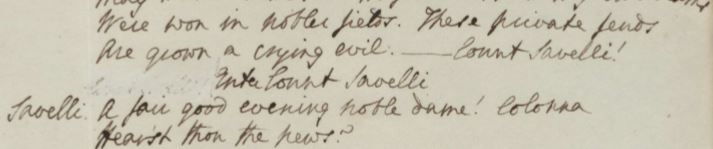 Were won in nobler fields. These private feuds
Are grown a crying evil. —— Count Savelli!
Enter Count Savelli
Savelli. A fair good evening noble dame! Colonna
Hearst thou the news?